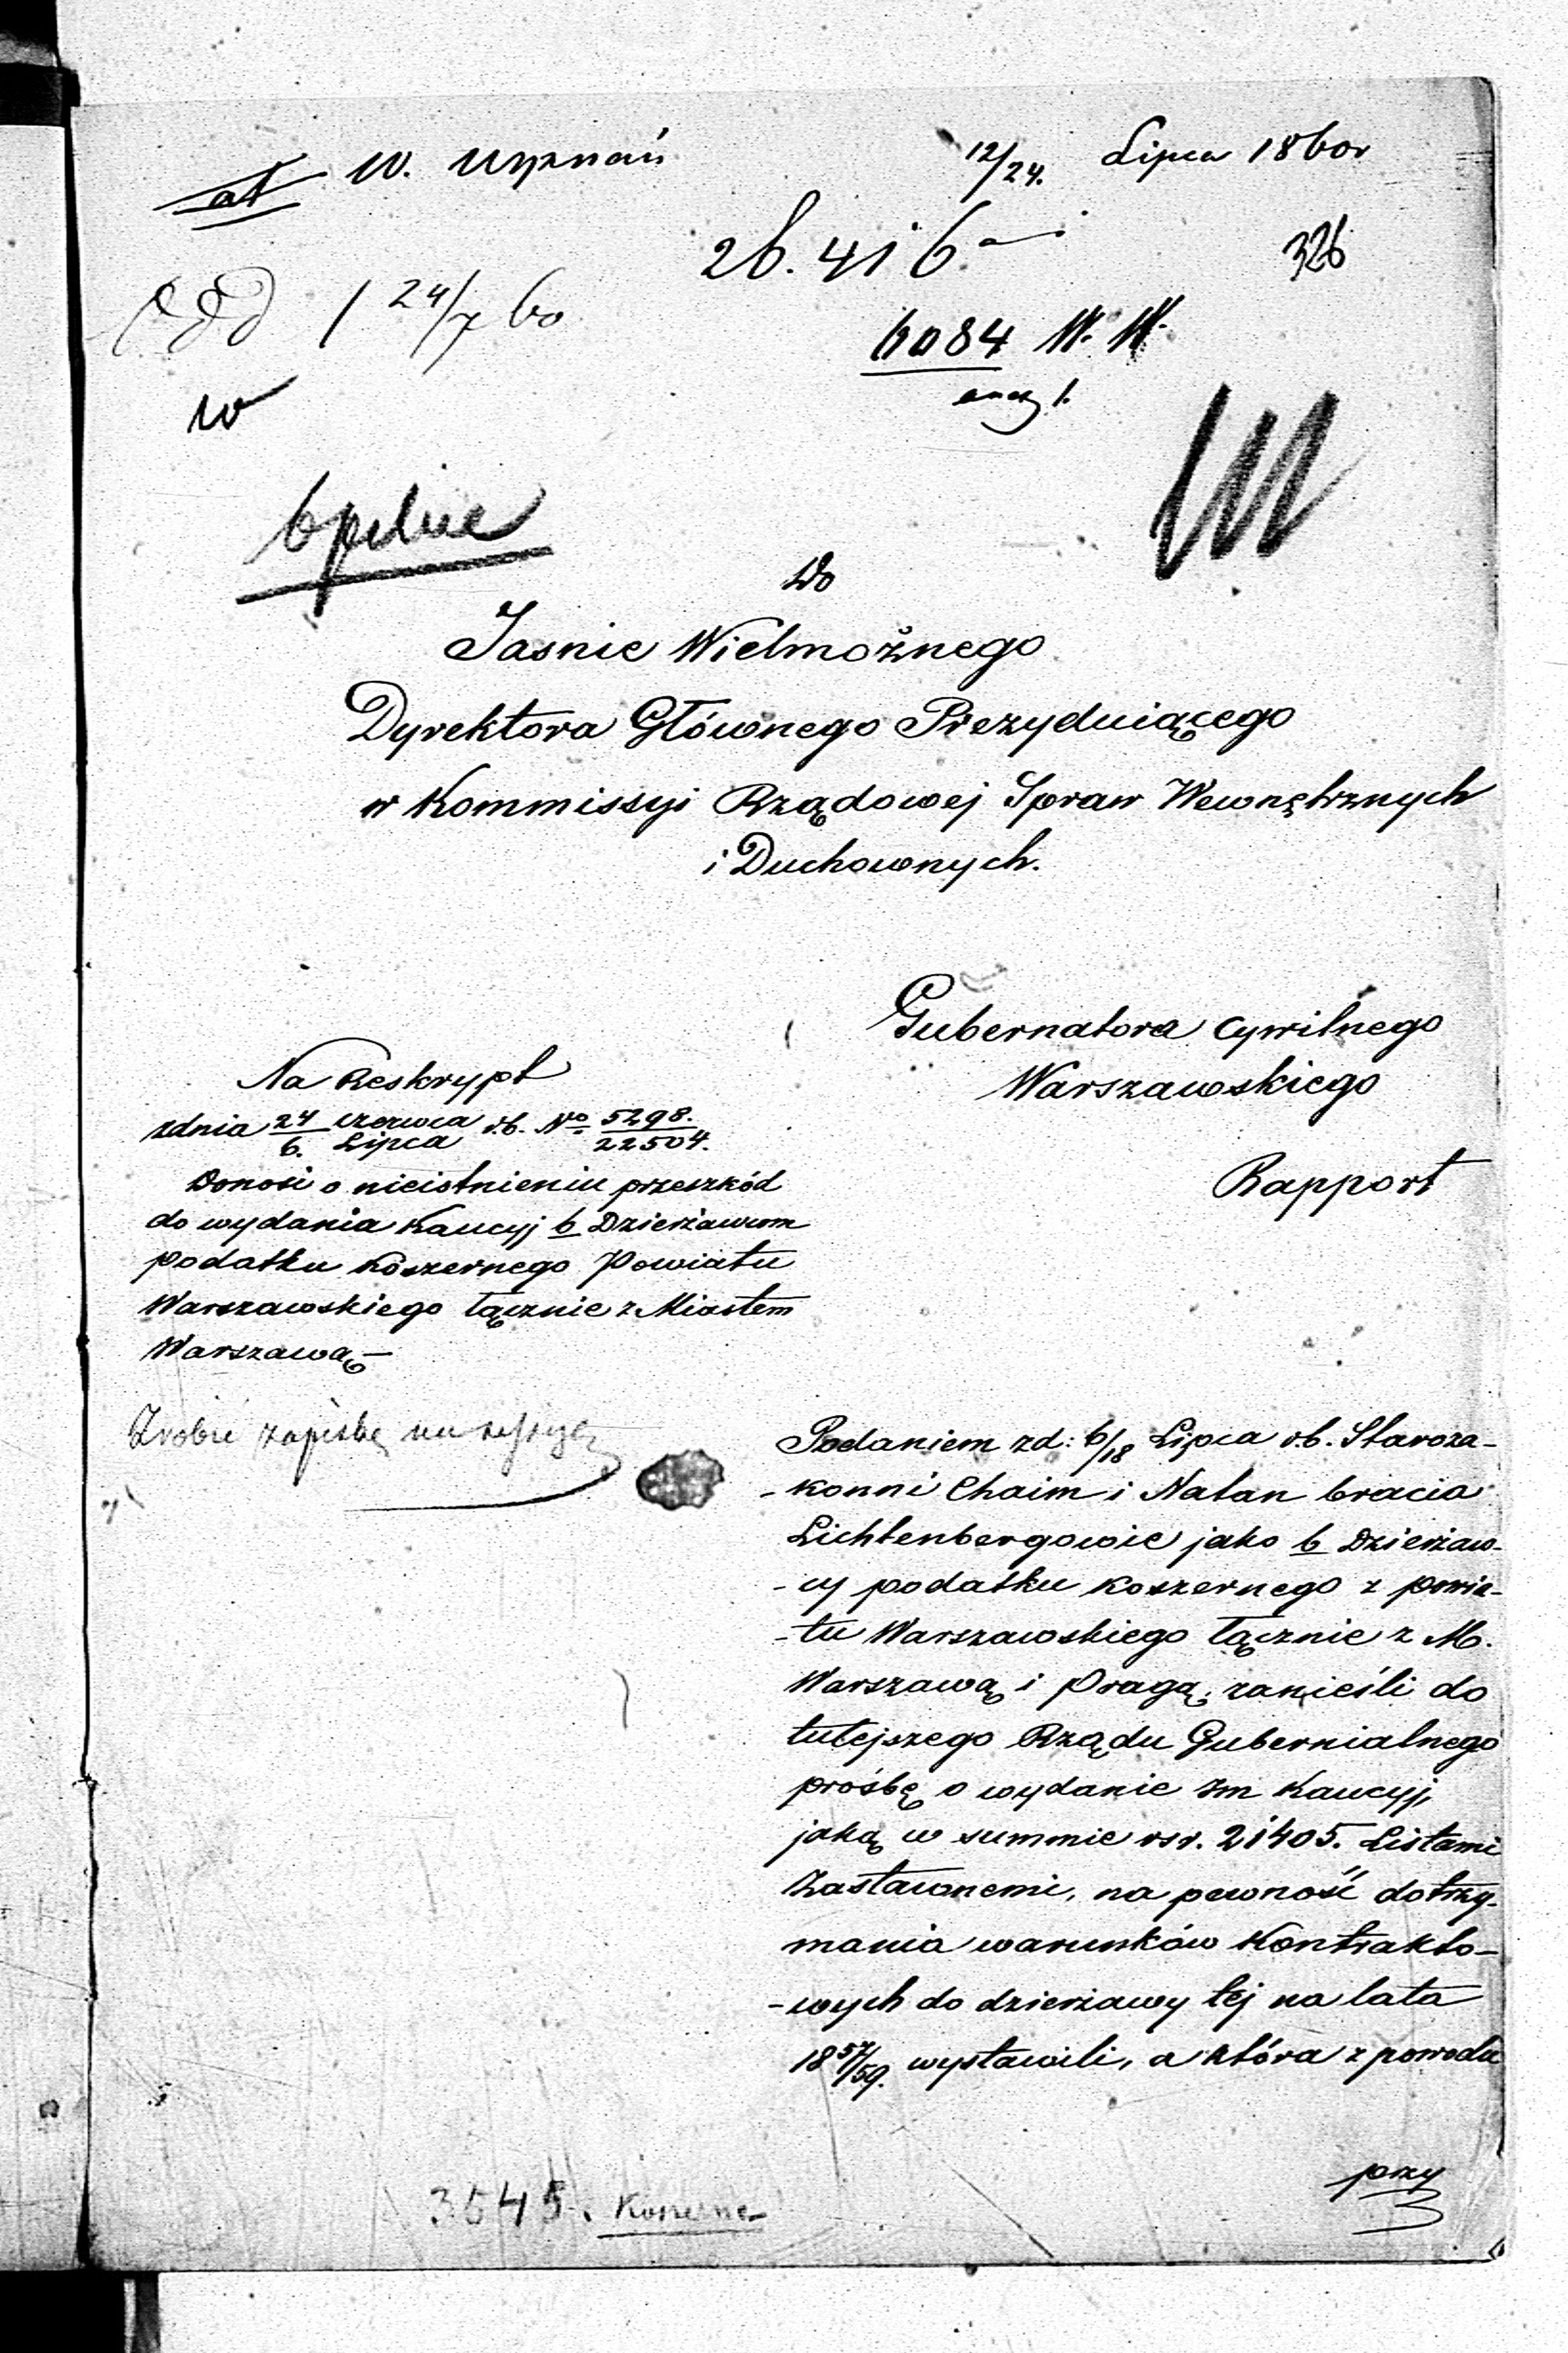 W. Wyznań
12/24. Lipca 1860 r
26.416
326
24/7 60
6084 W. W.
w
Do
Jasnie Wielmożnego
Dyrektora Głównego Prezyduiącego
w Kommissyi Rządowej Spraw Wewnętrznych
i Duchownych.
Gubernatora Cywilnego
Warszawskiego
Rapport
Na Reskrypt
zdnia 24 Czerwca / 6. Lipca r.b. No 5298. / 22504.
Donosi o nieistnieniu przeszkód
do wydania Kaucyj b Dzierżawcom
podatku Koszernego Powiatu
Warszawskiego łącznie z Miastem
Warszawą —
Zrobić zapiskę na
Podaniem zd: 6/18 Lipca r.b. Staroza-
-konni Chaim i Natan bracia
Lichtenbergowie jako b Dzierżaw-
-cy podatku koszernego z powia-
-tu Warszawskiego łącznie z M.
Warszawą i Pragą, zanieśli do
tutejszego Rządu Gubernialnego
prośbę o wydanie Im Kaucyj,
jaką w summie rsr. 21405. Listami
Zastawnemi, na pewność dotrzy-
mania warunków Kontrakto-
-wych do dzierżawy tej na lata
18 57/59. wystawili, a która z powodu
przy
3545. Koszerne